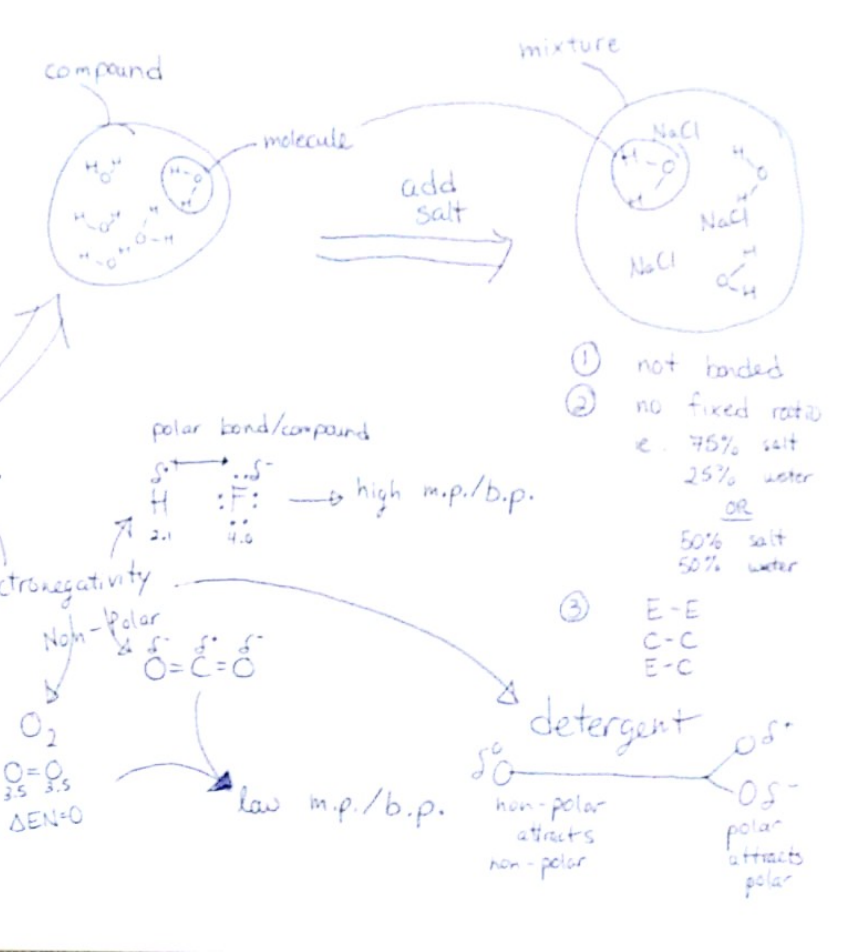 mixture
compound
molecule
add
salt
H H
O
H-O
H
H H
O
H
O-H
H H
O
NaCl
H-O
H
H
O
H
NaCl
NaCl
H
O
H
① not bonded
② no fixed ratio
75% salt
25% water
OR
50% salt
50% water
③ E-E
C-C
E-C
polar bond/compound
δ+ δ-
H :F:
2.1 4.0
high m.p./b.p.
ctronegativity
Non-Polar
δ- δ+ δ-
O=C=O
O2
O=O
3.5 3.5
ΔEN=0
low m.p./b.p.
detergent
δ° O
O δ+
O δ-
non-polar
attracts
non-polar
polar
attracts
polar